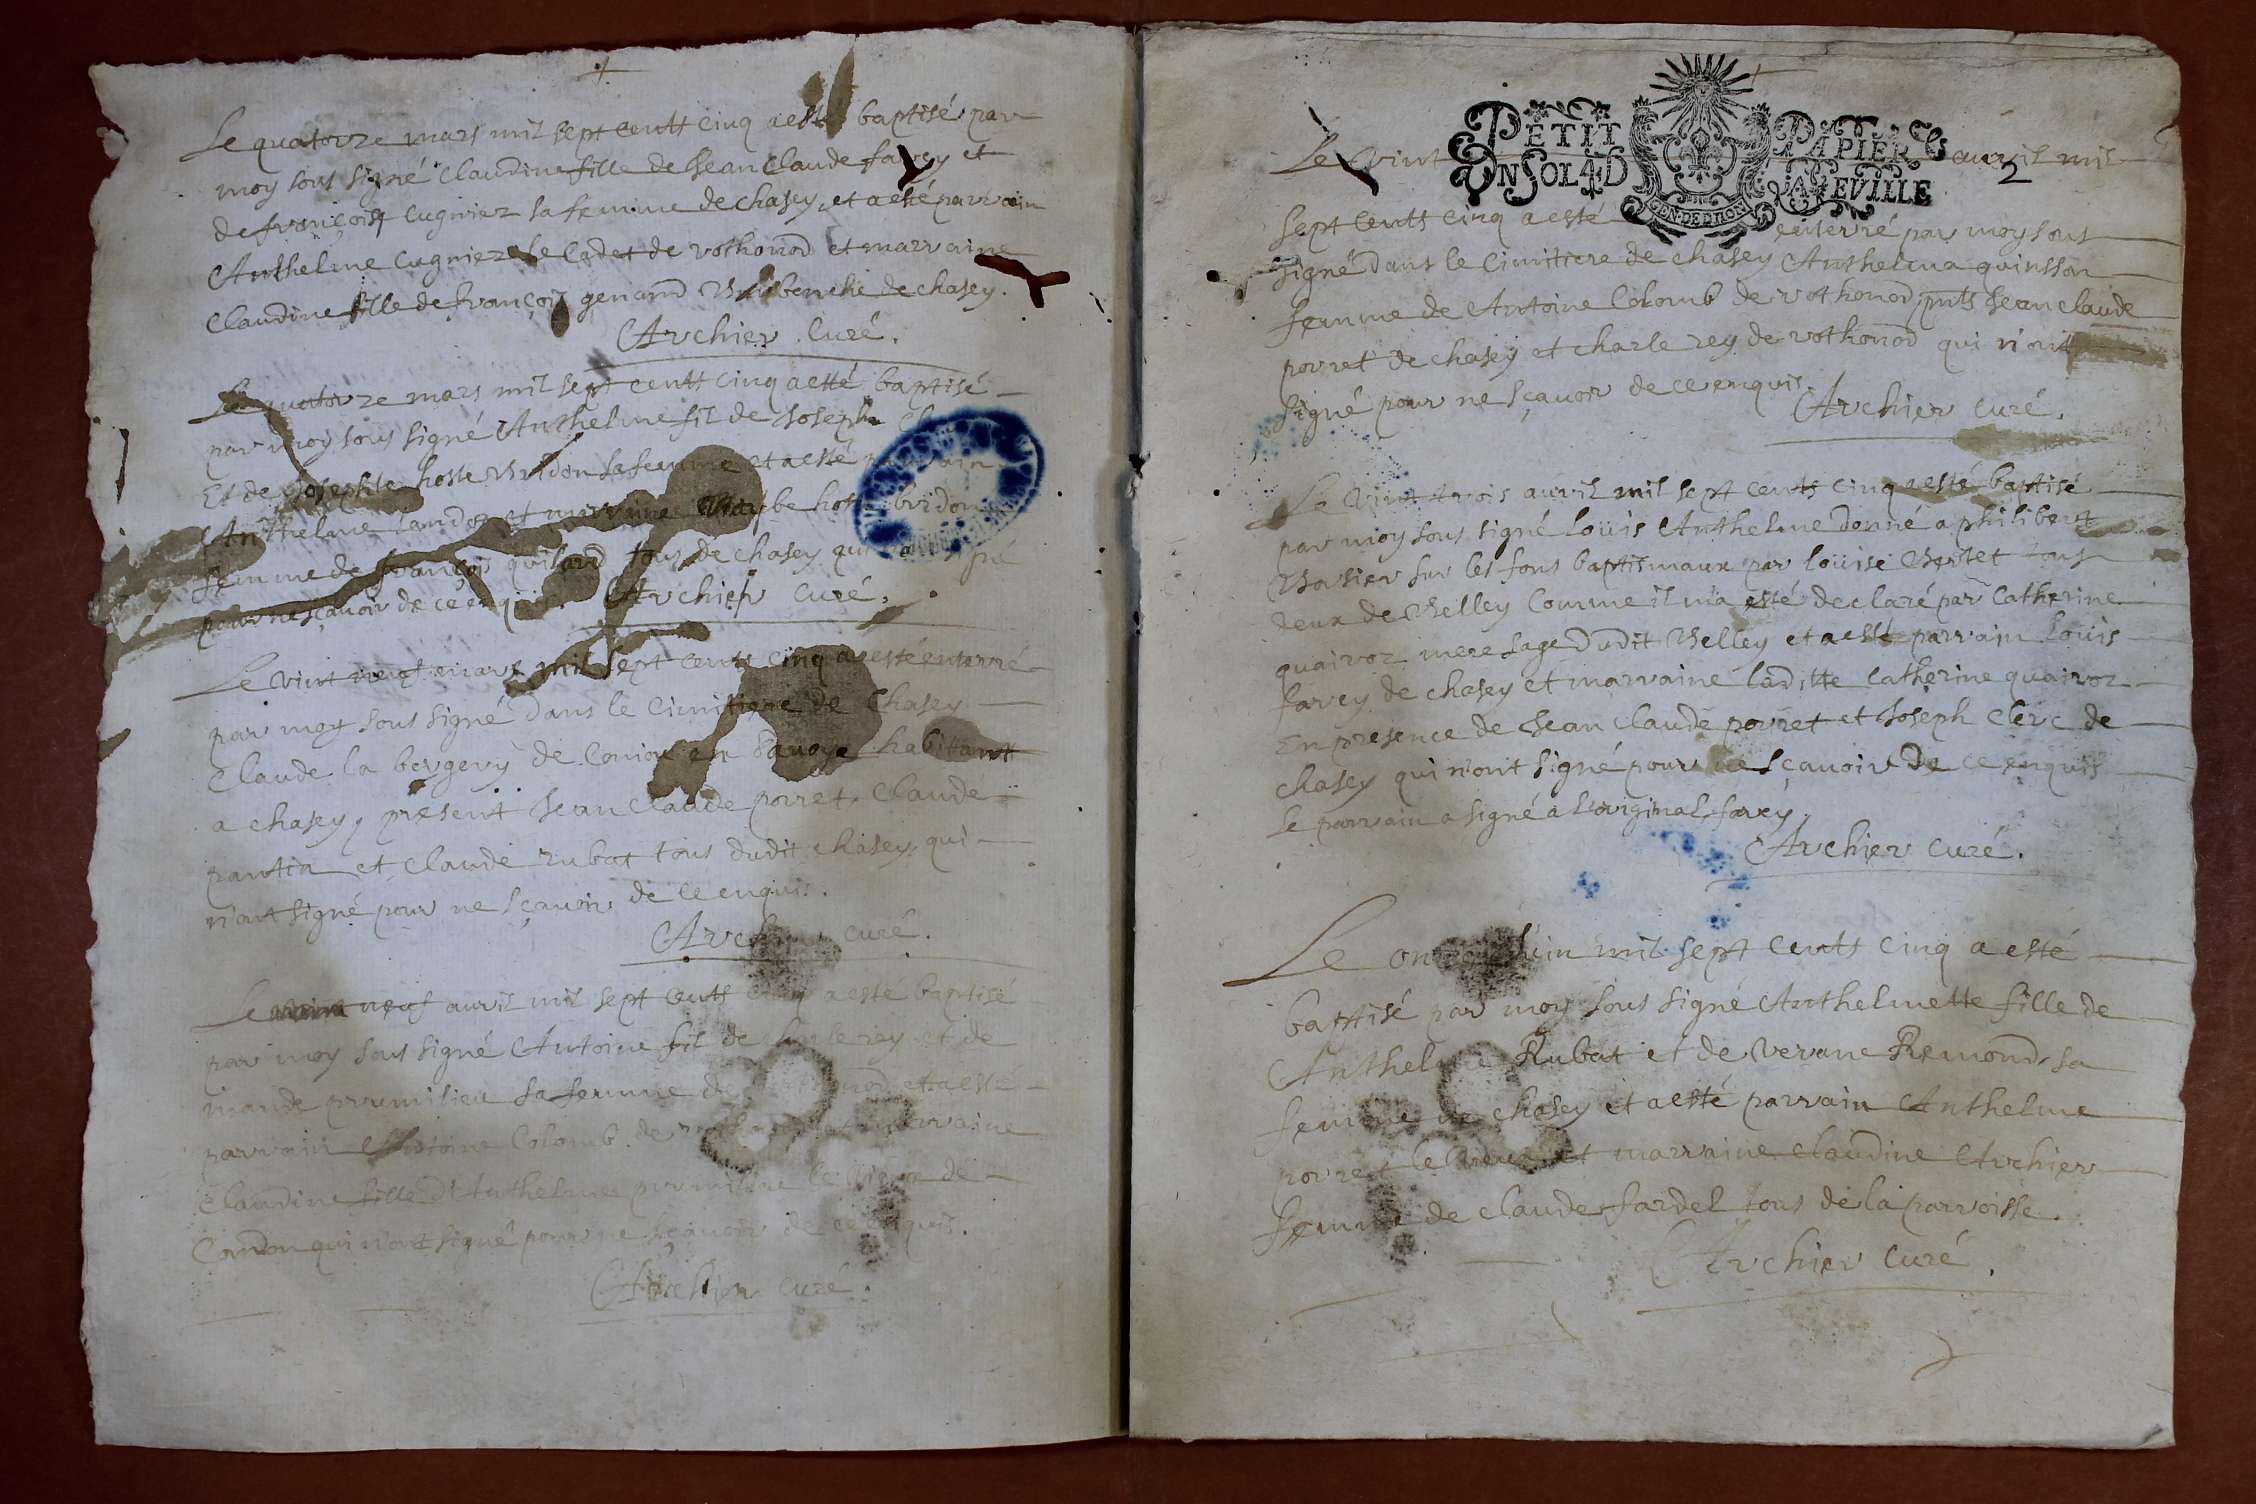 Le quatorze mars mil sept centt cinq a esté baptisé par
moy sous signé Claudine fille de Jean Claude farcy et
de françoise Cugniez sa femme de chasey, et a esté parrain
Anthelme Cugniez le Cadet de vothonod et marraine
Claudine fille de françois genand de chasey.
Archier Curé.
Le quatorze mars mil sept centt cinq a esté baptisé
par moy sous signé Anthelme fil de Joseph
Et de Josephte hoste Bridon sa femme et a esté parrain
Anthelme et marraine bridon
femme de françois quilard tous de chasey qui signé
pour ne sçavoir de ce enquis. Archier Curé.
Le vint neuf mars mil sept cents cinq a esté enterré
par moy sous signé dans le Cimitiere de Chasey
Claude la bergery de en Savoye habittant
a chasey, present Jean Claude porret, Claude
pantin et Claude rubat tous dudit chasey qui
n'ont signé pour ne sçavoir de ce enquis.
Archier Curé.
Le neuf auril mil sept cents cinq a esté baptisé
par moy sous signé Antoine fil de Charle rey et de
premilieu sa femme de et a esté
parrain Antoine Colomb de marraine
Claudine fille d'Anthelme premilieu le vieux de
Condon qui n'ont signé pour ne sçavoir de ce enquis.
Archier Curé.
PETIT PAPIER
UN SOL 4D LA FEVILLE
GEN. DE DIION
2
Le vint auril mil
sept centt cinq a esté enterré par moy sous
signé dans le Cimittiere de chasey Anthelma quinsson
femme de Antoine Colomb de vothonod, pnts Jean claude
porret de chasey et charle rey de vothonod qui n'ont
signé pour ne sçavoir de ce enquis.
Archier Curé.
Le vint trois auril mil sept cents cinq a esté baptisé
par moy sous signé Loüis Anthelme donné a philibert
Bosier sur les fons baptismaux par loüise Bertet tous
deux de Belley Comme il m'a esté declaré par Catherine
quaivoz mere sage dudit Belley et a esté parrain Loüis
farcy de chasey et marraine laditte Catherine quaivoz
En presence de Jean Claude porret et Joseph Clerc de
chasey qui n'ont signé pour ne sçavoir de ce enquis
le parrain a signé a l'original farcy
Archier Curé.
Le onze Juin mil sept centt cinq a esté
baptisé par moy sous signé Anthelmette fille de
Anthelme Rubat et de Verane Remond sa
femme de chasey et a esté parrain Anthelme
porret le vieux et marraine Claudine Archier
femme de Claude fardel tous de la parroisse.
Archier Curé.